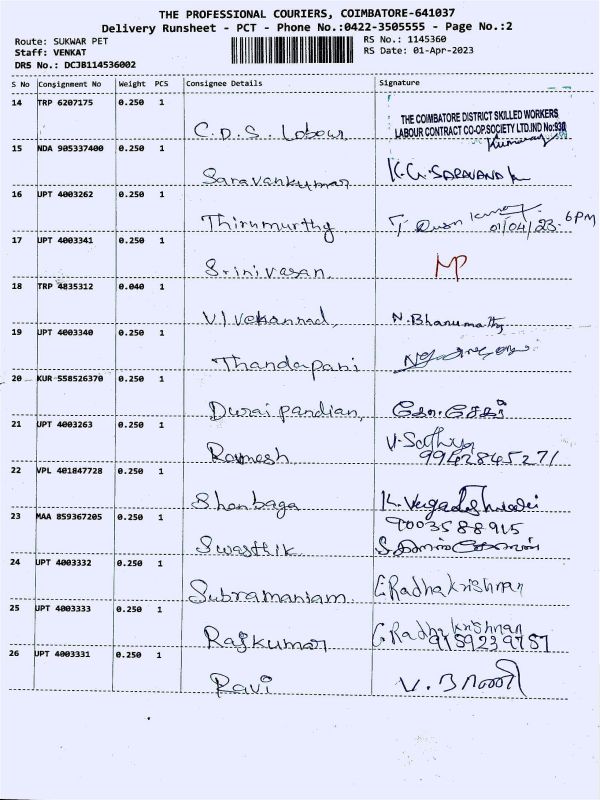 THE PROFESSIONAL COURIERS, COIMBATORE-641037
Delivery Runsheet - PCT - Phone No.:0422-3505555 - Page No.:2
Route: SUKWAR PET
RS No.: 1145360
Staff: VENKAT
RS Date: 01-Apr-2023
DRS No.: DCJB114536002
S No Consignment No Weight PCS Consignee Details Signature
14 TRP 6207175 0.250 1
THE COIMBATORE DISTRICT SKILLED WORKERS
C.D.S. Labour LABOUR CONTRACT CO-OP.SOCIETY LTD.IND No:930
15 NDA 905337400 0.250 1
Saravankumar K.G.SARAVANAK
16 UPT 4003262 0.250 1
Thirumurthy 01/04/23 6PM
17 UPT 4003341 0.250 1
Srinivasan MP
18 TRP 4835312 0.040 1
Vivekannad, N.Bhanumathy
19 UPT 4003340 0.250 1
Thandapani
20 KUR 558526370 0.250 1
Durai pandian,
21 UPT 4003263 0.250 1 V.Sathya
Ramesh 9942845271
22 VPL 401847728 0.250 1
Shanbaga
23 MAA 859367205 0.250 1 9003588915
Swasthik
24 UPT 4003332 0.250 1
Subramaniam G Radhakrishnan
25 UPT 4003333 0.250 1 G Radhakrishnan
Rajkumar 9159239787
26 UPT 4003331 0.250 1
Ravi